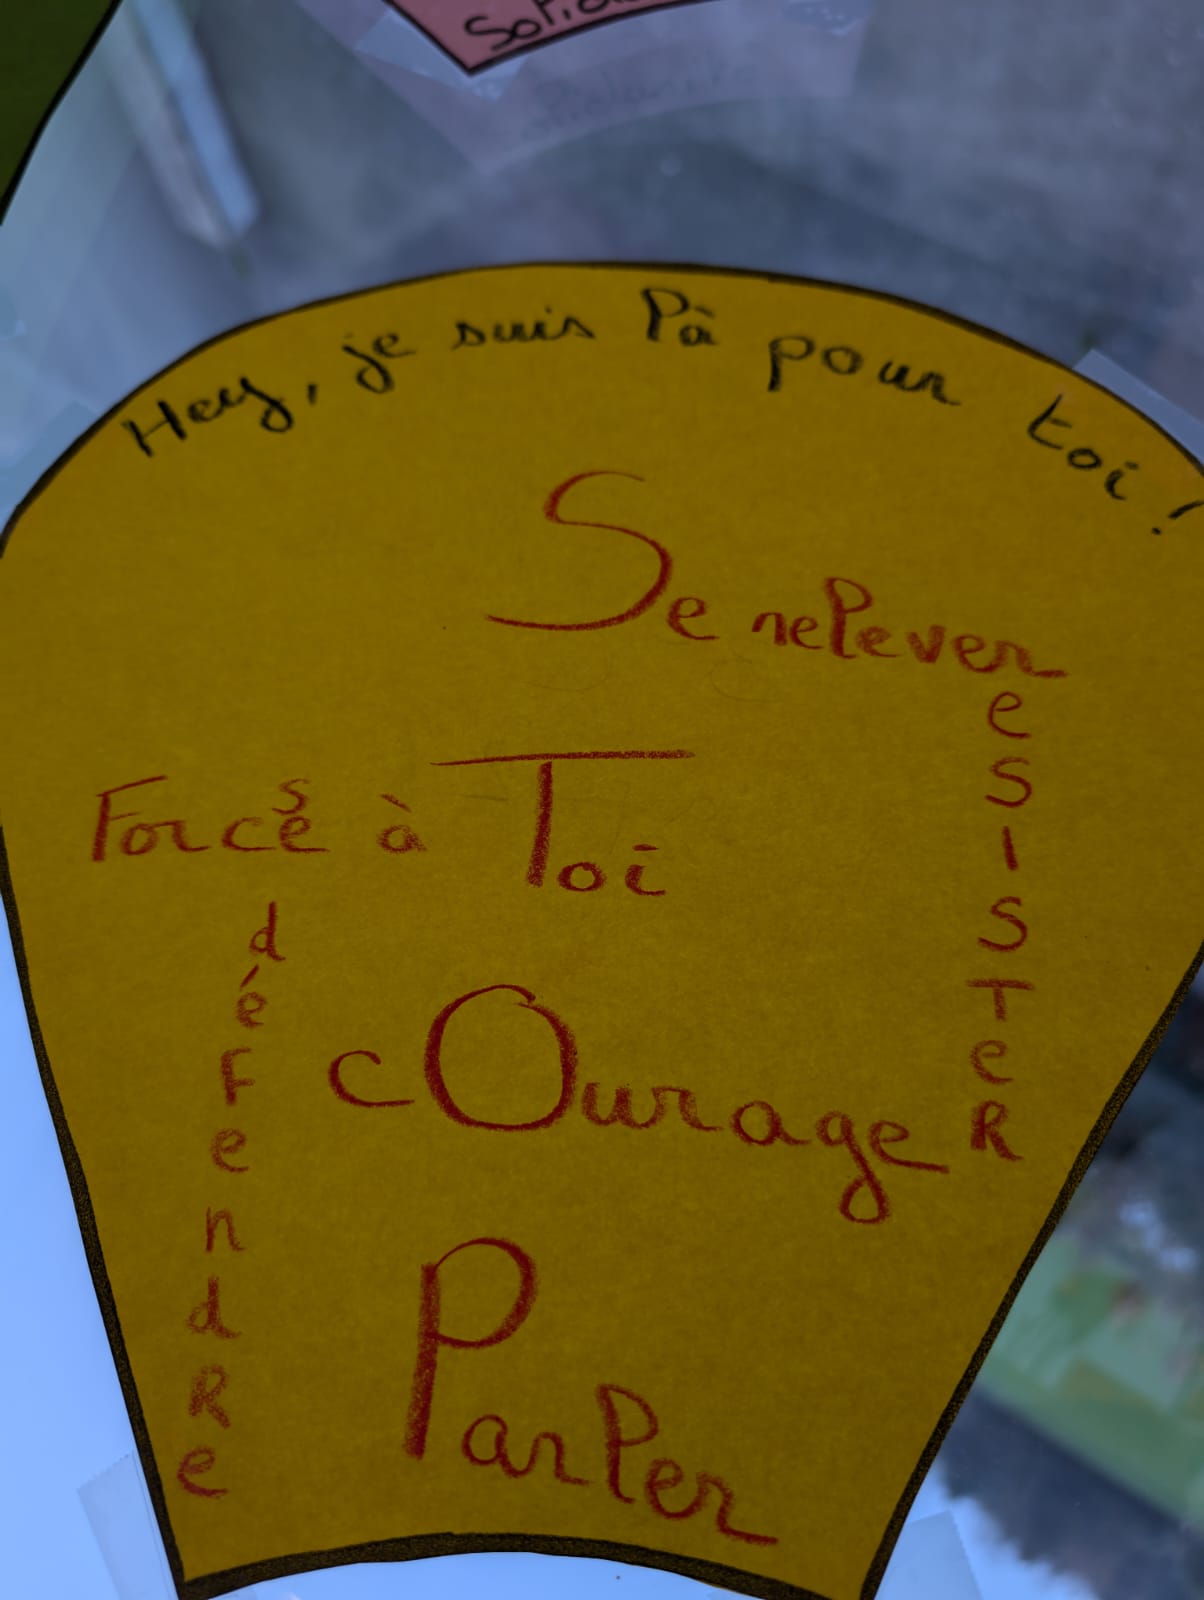 Hey, je suis là pour toi !
Se relever
résister
Force à Toi
se défendre
cOurage
Parler